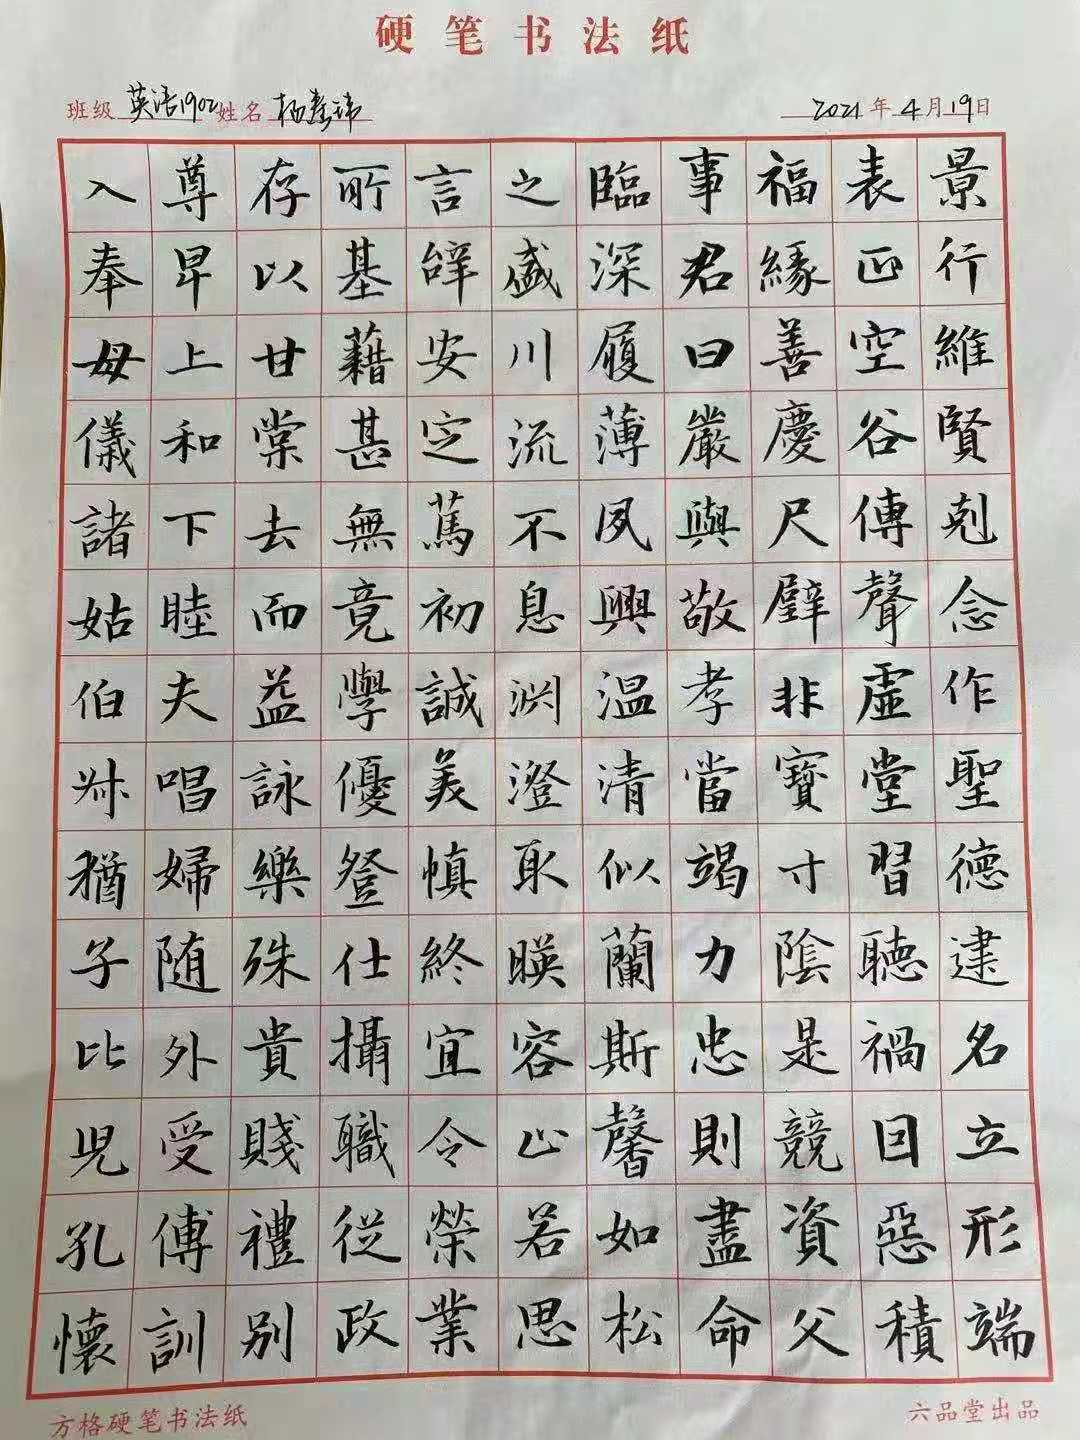 硬笔书法纸
班级 英语1902 姓名 杨
2021年4月19日
景行維賢剋念作聖德建名立形端
表正空谷傳聲虛堂習聽禍囙惡積
福緣善慶尺璧非寶寸陰是競資父
事君曰嚴與敬孝當竭力忠則盡命
臨深履薄夙興温清似蘭斯馨如松
之盛川流不息渊澄取暎容止若思
言辞安定篤初誠美慎終宜令榮業
所基藉甚無竟學優登仕攝職從政
存以甘棠去而益詠樂殊貴賤禮别
尊卑上和下睦夫唱婦随外受傅訓
入奉母儀諸姑伯叔猶子比兒孔懷
方格硬笔书法纸
六品堂出品